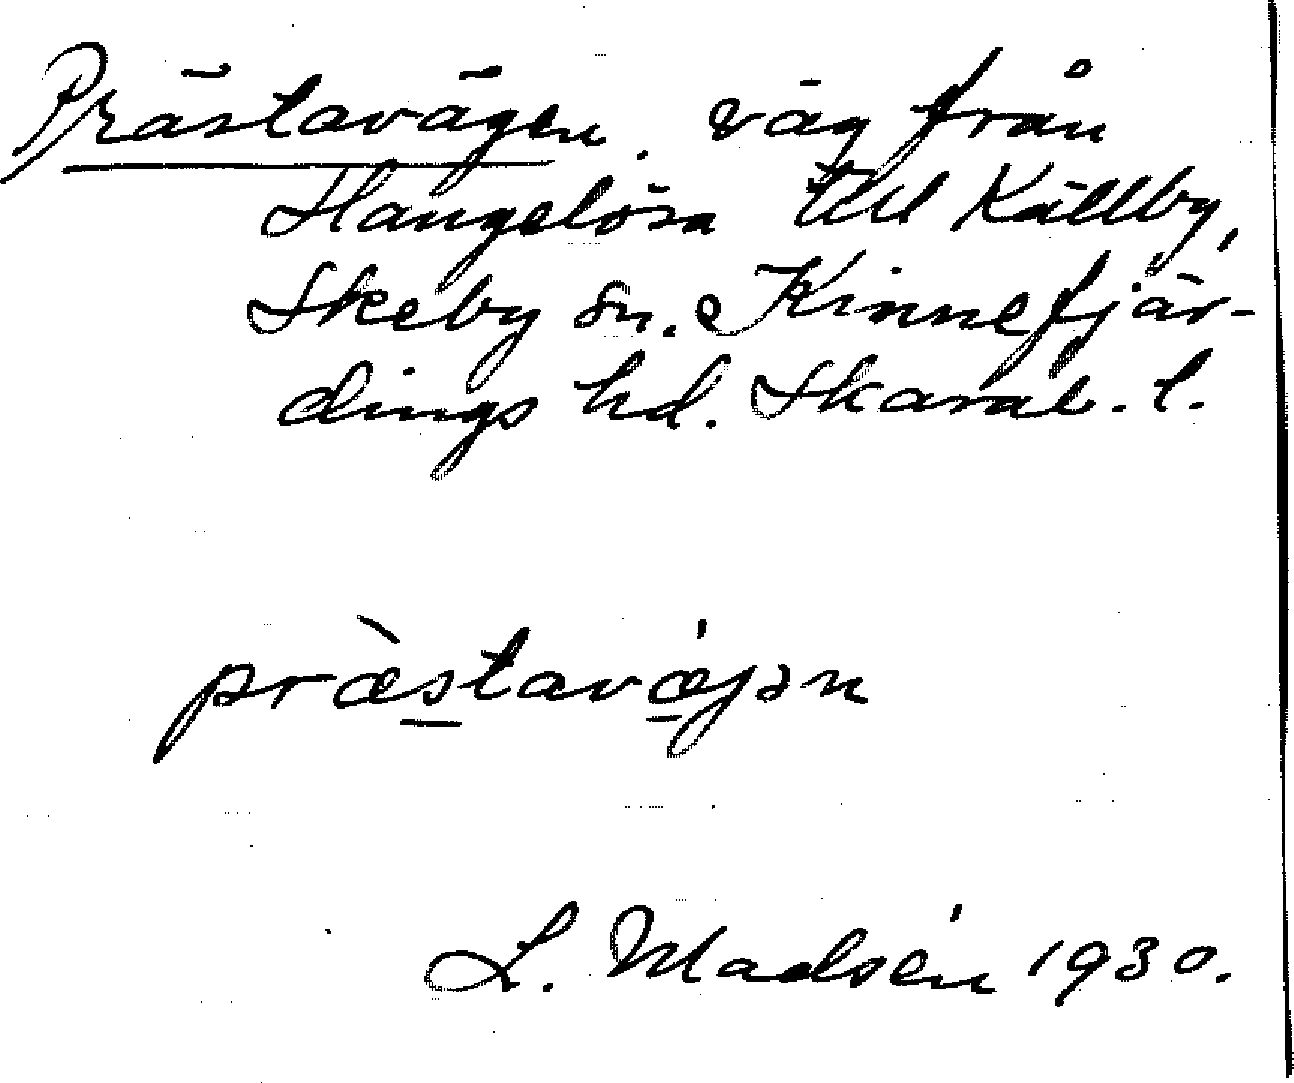 Prästavägen. väg från
Hangelösa till Källby,
Skeby sn. Kinnefjär-
dings hd. Skarab. l.
præ̀stavǽjən
L. Madsén 1930.